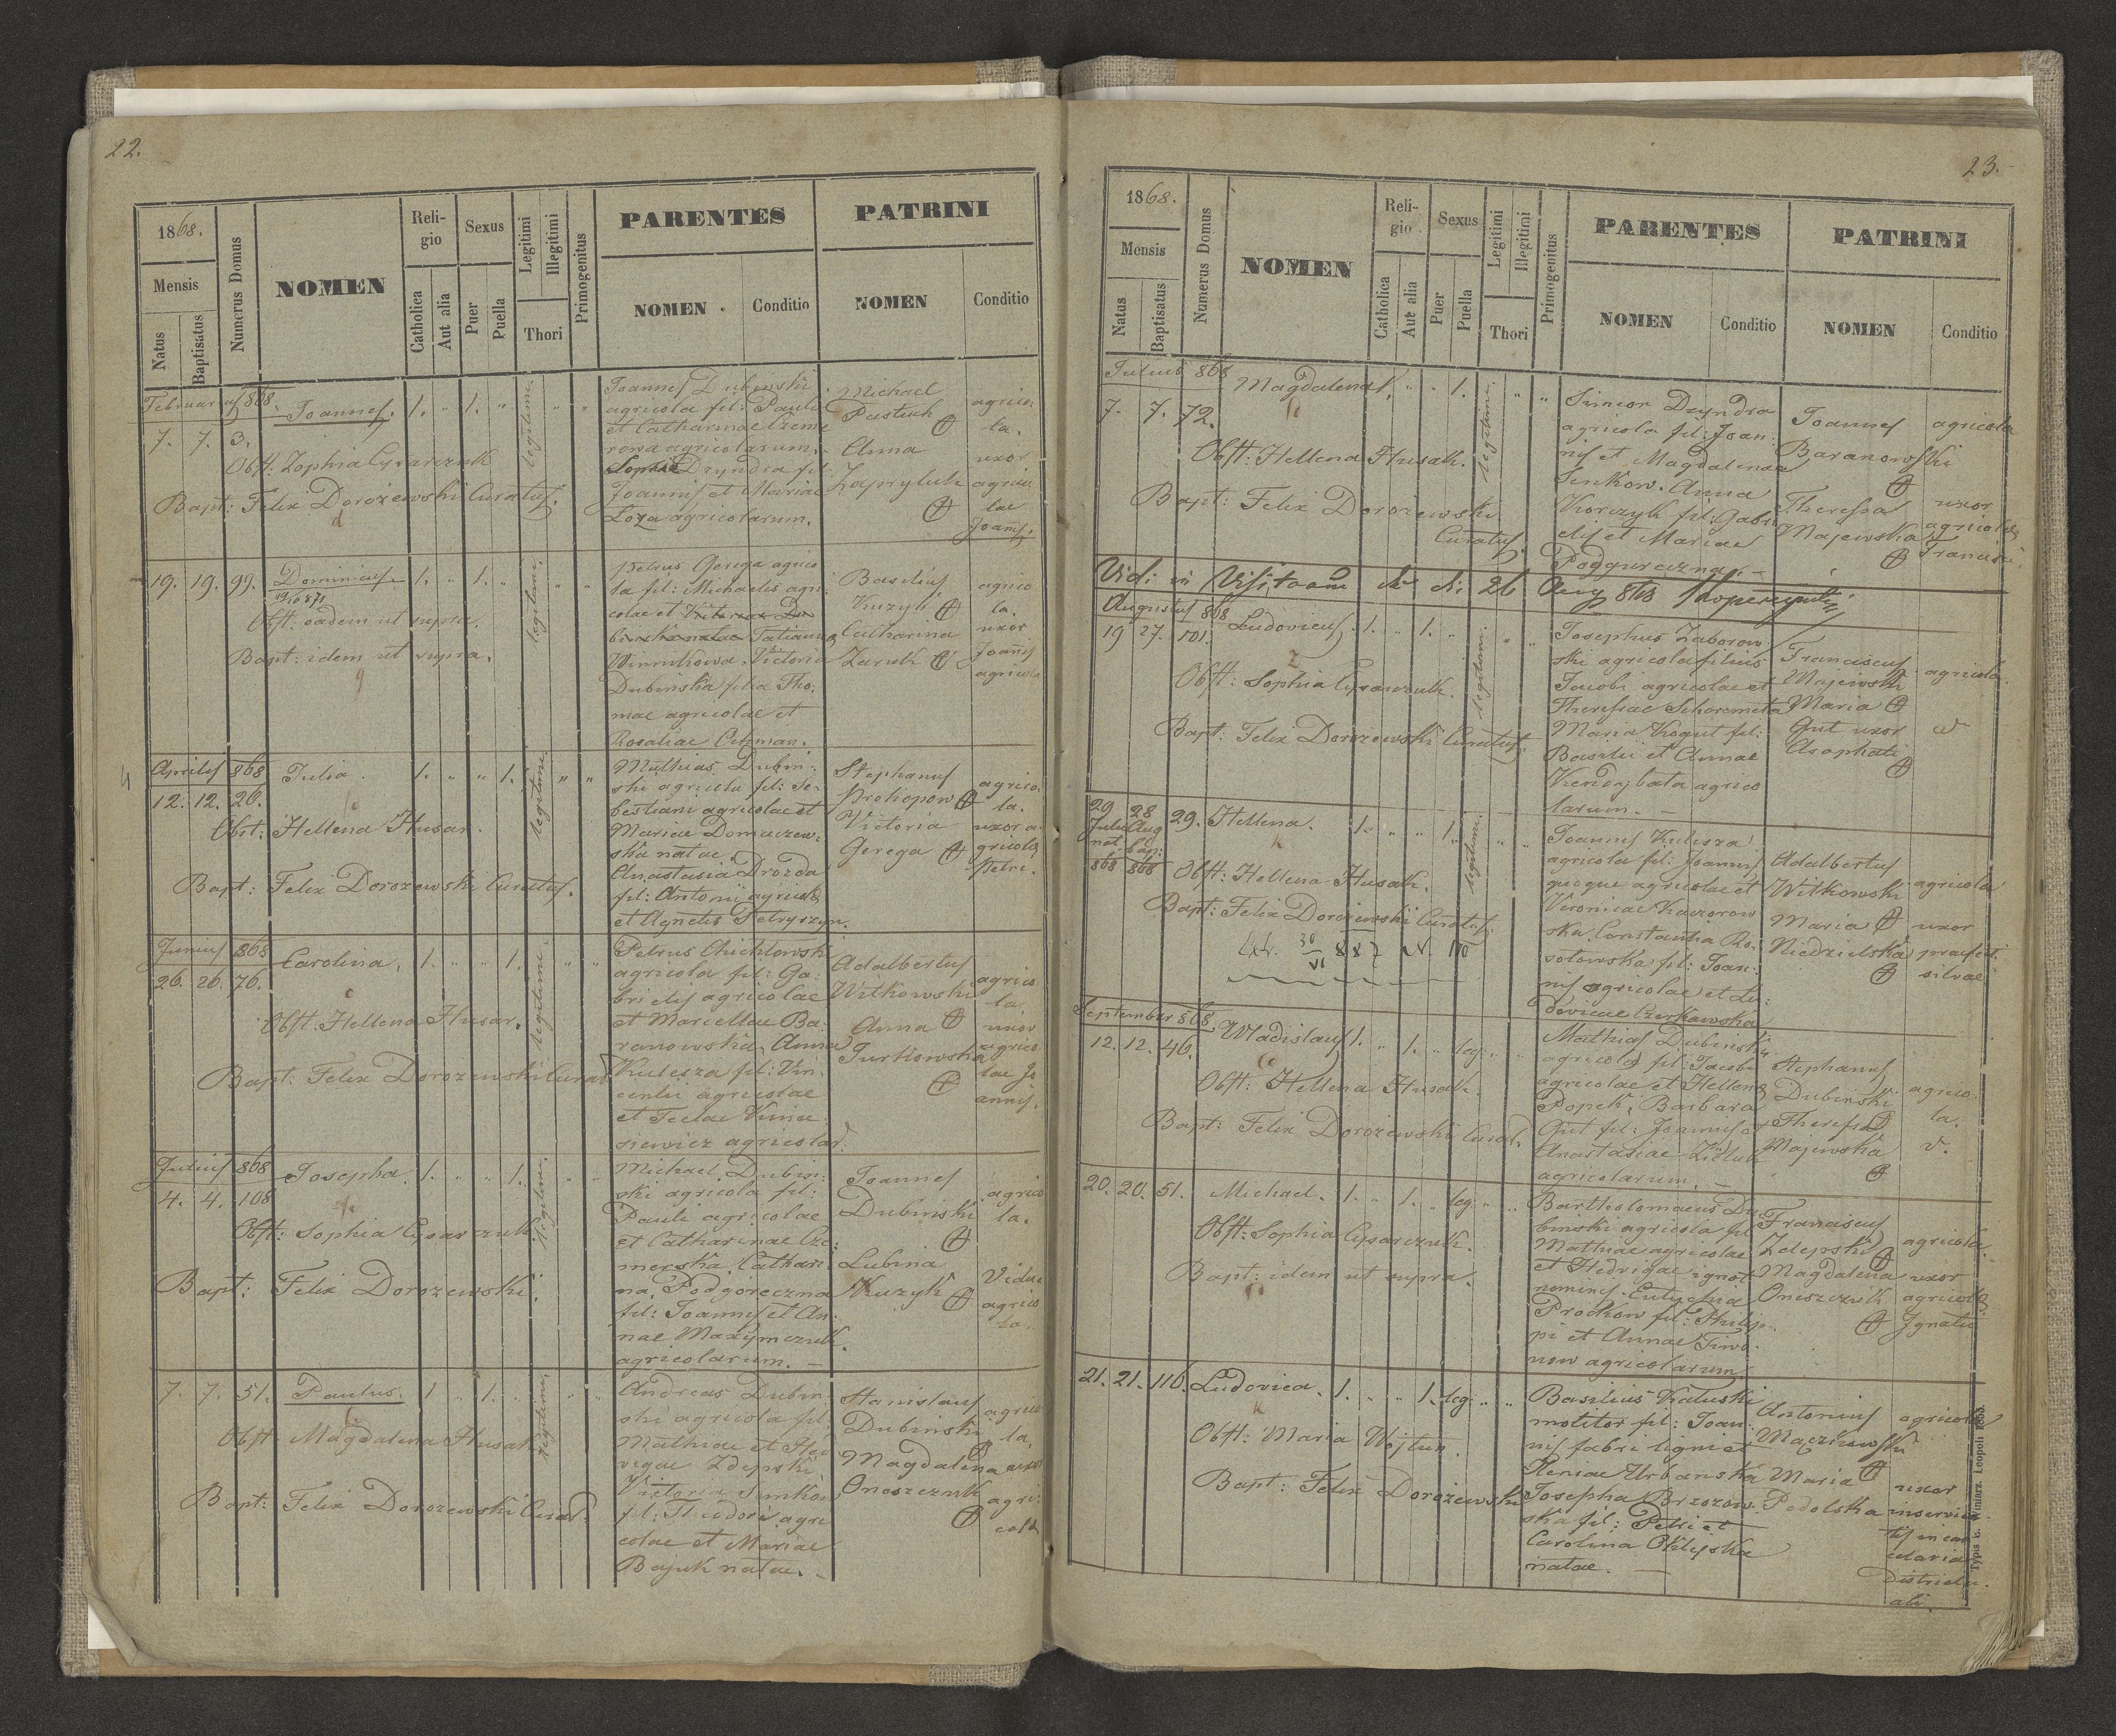 22.
1868.
Mensis
Natus
Baptisatus
Numerus Domus
NOMEN
Religio
Catholica
Aut alia
Sexus
Puer
Puella
Legitimi
Illegitimi
Thori
Primogenitus
PARENTES
NOMEN
Conditio
PATRINI
NOMEN
Conditio
Februarius 868.
7. 7. 3.
Joannes. 1. " 1. "
legitimi
Obst: Zophia Cysarczuk
Bapt: Felix Dorożewski Curatus.
Joannes Dubinski
agricola fil: Pauli
et Catharinae Czeme
rowa agricolarum.
Sophia Dzyndra fil:
Joannis et Mariae
Łoza agricolarum.
Michael
Pastuch
Anna
Zapryluk
agrico:
la.
uxor
agrico:
lae
Joannis.
19. 19. 99. Dominicus 1. " 1. "
legitimi
19/10 871
Obst: eadem ut supra.
Bapt: idem ut supra.
Petrus Gerega agrico
la fil: Michaelis agri:
colae et Victoriae Du
binska natae Tatianna
Winnikowa. Victoria
Dubinska filia Tho:
mae agricolae et
Rosaliae Ochman.
Basilius
Kuzyk
Catharina
Zaruk
agrico
la.
uxor
Joannis
agricola
Aprilis 868
12. 12. 26.
Julia. 1. " " 1. " "
legitimi
Obst: Hellena Husar.
Bapt: Felix Dorożewski Curatus.
Mathias Dubin:
ski agricola fil: Se:
bestiani agricolae et
Mariae Domaczew:
ska natae.
Anastasia Drozda
fil: Antonii agricolae
et Agnetis Petryszyn.
Stephanus
Prokopow
Victoria
Gerega
agrico:
la.
uxor a:
gricolae
Petri.
Junius 868
26. 26. 76.
Carolina. 1. " " 1. "
legitimi
Obst. Hellena Husar.
Bapt: Felix Dorożewski Curat
Petrus Chichlowski
agricola fil: Ga:
brielis agricolae
et Marcellae Ba:
ranowska. Anna
Kulesza fil: Vin:
centii agricolae
et Teclae
siewicz agricolar:
Adalbertus
Witkowski
Anna
Turkowska
agrico
la.
uxor
agrico
lae Jo
annis.
Julius 868
4. 4. 108
Josepha. 1. " " 1.
legitimi
Obst: Sophia Cysarczuk
Bapt: Felix Dorożewski.
Michael Dubin:
ski agricola fil:
Pauli agricolae
et Catharinae Cze:
merska. Cathari:
na Podgóreczna
fil: Joannis et An:
nae Maxymczuk.
agricolarum. –
Joannes
Dubinski
Lubina
Kuzyk
agrico
la.
Vidua
agrico
la.
7. 7. 51. Paulus. 1 " 1.
legitimi
Obst: Magdalena Husak
Bapt: Felix Dorożewski Curat:
Andreas Dubin
ski agricola fil:
Mathiae et Hed
vigae Zdepski
Victoria Senkow
fil: Theodori agri
colae et Mariae
Bajuk natae. –
Stanislaus
Dubinski
Magdalena
Oneszczuk
agrico
la.
uxor
agri:
cola
23.
1868.
Mensis
Natus
Baptisatus
Numerus Domus
NOMEN
Religio
Catholica
Aut alia
Sexus
Puer
Puella
Legitimi
Illegitimi
Thori
Primogenitus
PARENTES
NOMEN
Conditio
PATRINI
NOMEN
Conditio
Julius 868
7. 7. 72.
Magdalena 1. " " 1. " "
legitimi
Obst: Hellena Husak.
Bapt: Felix Dorożewski
Curatus.
Simeon Dzyndra
agricola fil: Joan:
nis et Magdalenae
Senkow. Anna
Korczyk fil: Gabri
elis et Mariae
Poggureczna. –
Joannes
Baranowski
Theressa
Majewska
agricola
uxor
agricolae
Francisci
Vidi in Visitaom die 26 Aug 868
Augustus 868
19 27. 101.
Ludovicus. 1. " 1. "
legitimi
Obst: Sophia Cysarczuk.
Bapt: Felix Dorożewski Curatus.
Josephus Zaborow
ski agricola filius
Jacobi agricolae et
Theressae Schoremeta
Maria Kogut fil:
Basilii et Annae
agrico
larum. –
Franciscus
Majewski
Maria
Gut uxor
Asaphati
agricola.
29 28 29.
Julii Aug
nat bap:
868 868
Hellena. 1. " " 1.
legitimi
Obst: Hellena Husak.
Bapt: Felix Dorożewski Curatus.
30/VI 887 N. 100
Joannes Kulesza
agricola fil: Joannis
quoque agricolae et
Veronicae Kaczorow
ska. Constantia Ro:
sołowska fil: Joan:
nis agricolae et Lu:
dovicae Czerkawska
Adalbertus
Witkowski
Maria
Niedzielska
agricola
uxor
praefect.
silvae
September 868.
12. 12. 46.
Wladislaus 1. " 1. " leg: "
Obst: Hellena Husak.
Bapt: Felix Dorożewski Curat.
Mathias Dubinski
agricola fil: Jacobi
agricolae et Hellena
Popek. Barbara
Gut fil: Joannis et
Anastasiae
agricolarum. –
Stephanus
Dubinski
Theressa
Majewska
agrico
la.
v.
20. 20. 51. Michael. 1. " 1. " leg: "
Obst: Sophia Cysarczuk.
Bapt: idem ut supra.
Bartholomaeus Du
binski agricola fil
Mathiae agricolae
et Hedvigae ignot
nominis. Eutychia
Prockow fil: Philip:
pi et Annae Timo:
now agricolarum
Franciscus
Zdepski
Magdalena
Oneszczuk
agricola.
uxor
agricolae
Ignatii
21. 21. 116. Ludovica. 1. " " 1. leg: " "
Obst: Maria Wojtun.
Bapt: Felix Dorożewski
Basilius Kaluski
molitor fil: Joan:
nis fabri ligni et
Xeniae Urbanska
Josepha Brzozow:
ska fil: Petri et
Carolina
natae. –
Antonius
Maria
Podolska
agricola
uxor
inservien
tis in can
celaria
Districtu:
ali.
Typis E. Winiarz Leopoli 1865.